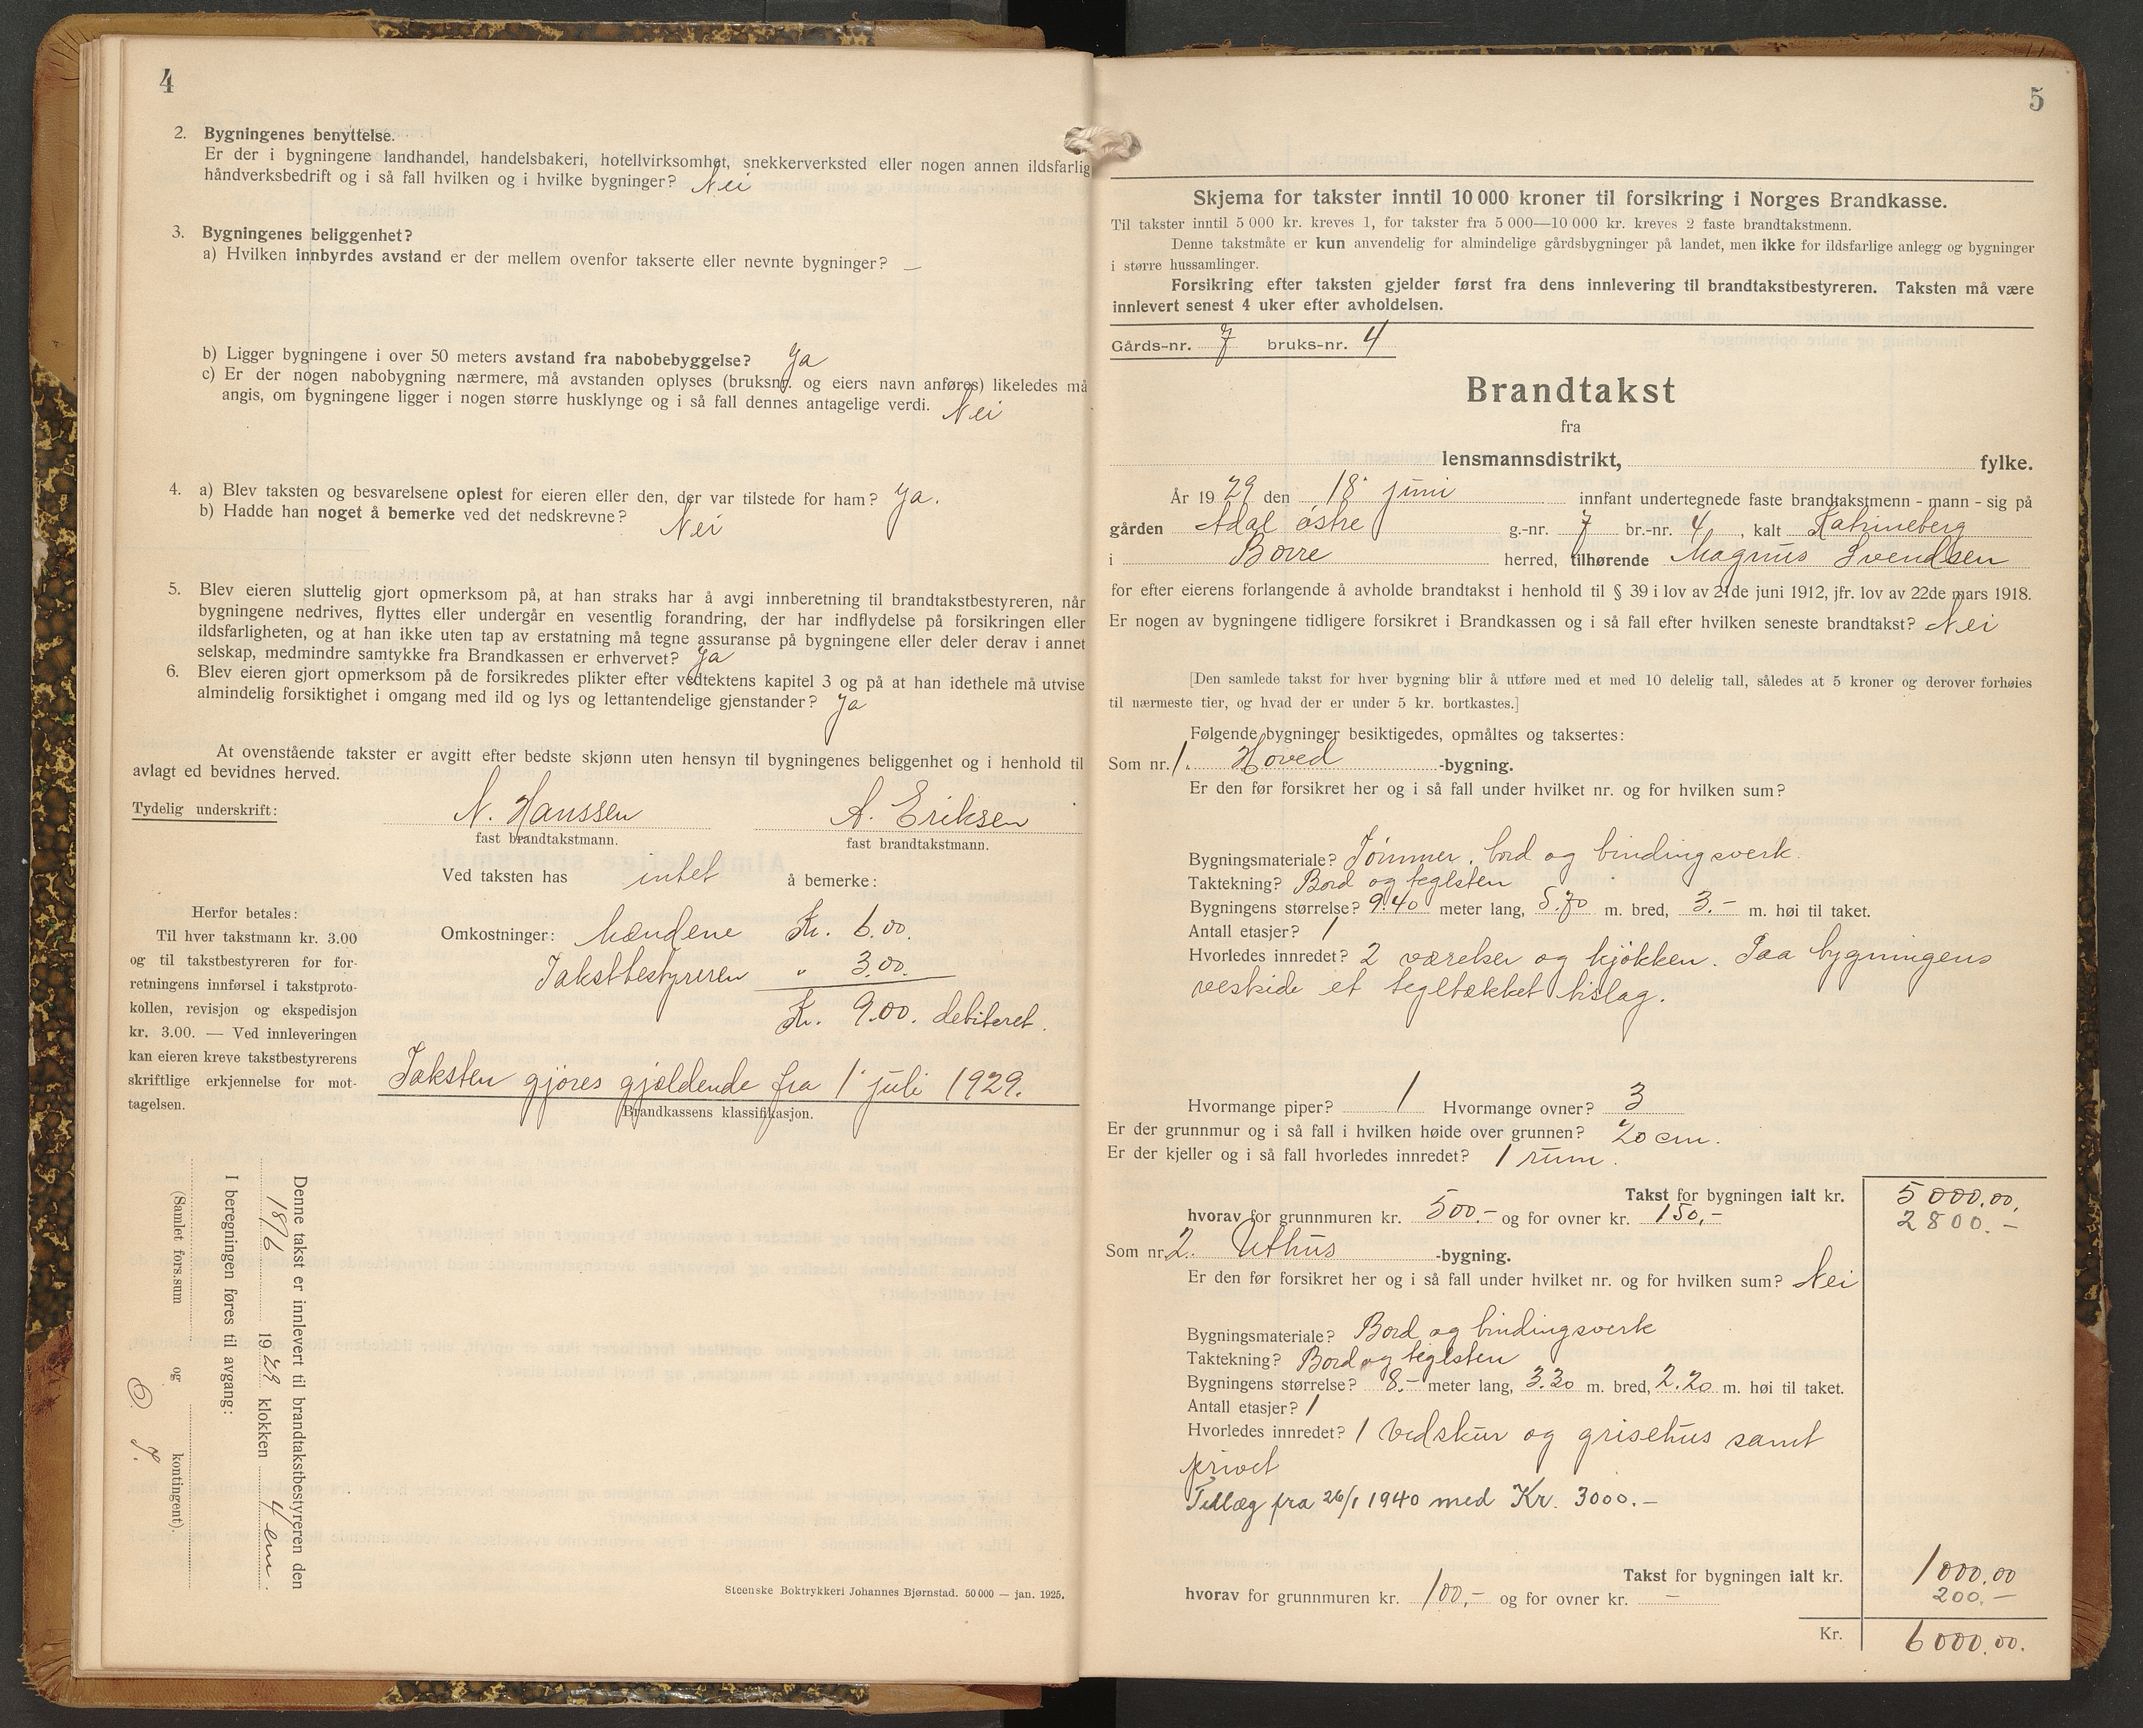 4
2. Bygningenes benyttelse.
Er der i bygningene landhandel, handelsbakeri, hotellvirksomhet, snekkerverksted eller nogen annen ildsfarlig
håndverksbedrift og i så fall hvilken og i hvilke bygninger? Nei
3. Bygningenes beliggenhet?
a) Hvilken innbyrdes avstand er der mellem ovenfor takserte eller nevnte bygninger? —
b) Ligger bygningene i over 50 meters avstand fra nabobebyggelse? Ja
c) Er der nogen nabobygning nærmere, må avstanden oplyses (bruksnr. og eiers navn anføres) likeledes må
angis, om bygningene ligger i nogen større husklynge og i så fall dennes antagelige verdi. Nei
4. a) Blev taksten og besvarelsene oplest for eieren eller den, der var tilstede for ham? Ja.
b) Hadde han noget å bemerke ved det nedskrevne? Nei
5. Blev eieren sluttelig gjort opmerksom på, at han straks har å avgi innberetning til brandtakstbestyreren, når
bygningene nedrives, flyttes eller undergår en vesentlig forandring, der har indflydelse på forsikringen eller
ildsfarligheten, og at han ikke uten tap av erstatning må tegne assuranse på bygningene eller deler derav i annet
selskap, medmindre samtykke fra Brandkassen er erhvervet? Ja
6. Blev eieren gjort opmerksom på de forsikredes plikter efter vedtektens kapitel 3 og på at han idethele må utvise
almindelig forsiktighet i omgang med ild og lys og lettantendelige gjenstander? Ja
At ovenstående takster er avgitt efter bedste skjønn uten hensyn til bygningenes beliggenhet og i henhold til
avlagt ed bevidnes herved.
Tydelig underskrift: N. Hanssen A. Eriksen
fast brandtakstmann. fast brandtakstmann.
Ved taksten has intet å bemerke:
Herfor betales:
Til hver takstmann kr. 3.00
og til takstbestyreren for for-
retningens innførsel i takstproto-
kollen, revisjon og ekspedisjon
kr. 3.00. — Ved innleveringen
kan eieren kreve takstbestyrerens
skriftlige erkjennelse for mot-
tagelsen.
Omkostninger: Mændene Kr. 6.00.
Takstbestyreren " 3.00.
Kr. 9.00. debiteret.
Taksten gjøres gjældende fra 1' juli 1929.
Brandkassens klassifikasjon.
Denne takst er innlevert til brandtakstbestyreren den
18/6 1929 klokken 4 em.
I beregningen føres til avgang:
(Samlet fors.sum og kontingent).
Steenske Boktrykkeri Johannes Bjørnstad. 50 000 — jan. 1925.
5
Skjema for takster inntil 10 000 kroner til forsikring i Norges Brandkasse.
Til takster inntil 5 000 kr. kreves 1, for takster fra 5 000—10 000 kr. kreves 2 faste brandtakstmenn.
Denne takstmåte er kun anvendelig for almindelige gårdsbygninger på landet, men ikke for ildsfarlige anlegg og bygninger
i større hussamlinger.
Forsikring efter taksten gjelder først fra dens innlevering til brandtakstbestyreren. Taksten må være
innlevert senest 4 uker efter avholdelsen.
Gårds-nr. 7 bruks-nr. 4
Brandtakst
fra
lensmannsdistrikt, fylke.
År 1929 den 18' juni innfant undertegnede faste brandtakstmenn - mann - sig på
gården Adal østre g.-nr. 7 br.-nr. 4, kalt Katrineberg
i Borre herred, tilhørende Magnus Svendsen
for efter eierens forlangende å avholde brandtakst i henhold til § 39 i lov av 21de juni 1912, jfr. lov av 22de mars 1918.
Er nogen av bygningene tidligere forsikret i Brandkassen og i så fall efter hvilken seneste brandtakst? Nei
[Den samlede takst for hver bygning blir å utføre med et med 10 delelig tall, således at 5 kroner og derover forhøies
til nærmeste tier, og hvad der er under 5 kr. bortkastes.]
Følgende bygninger besiktigedes, opmåltes og taksertes:
Som nr. 1. Hoved -bygning.
Er den før forsikret her og i så fall under hvilket nr. og for hvilken sum?
Bygningsmateriale? Tømmer, bord og bindingsverk.
Taktekning? Bord og teglsten
Bygningens størrelse? 9.40 meter lang, 5.70 m. bred, 3.- m. høi til taket.
Antall etasjer? 1
Hvorledes innredet? 2 værelser og kjøkken. Paa bygningens
vestside et tegltækket bislag.
Hvormange piper? 1 Hvormange ovner? 3
Er der grunnmur og i så fall i hvilken høide over grunnen? 20 cm.
Er der kjeller og i så fall hvorledes innredet? 1 rum.
Takst for bygningen ialt kr. 5000.00.
hvorav for grunnmuren kr. 500.- og for ovner kr. 150.- 2800.-
Som nr. 2. Uthus -bygning.
Er den før forsikret her og i så fall under hvilket nr. og for hvilken sum? Nei
Bygningsmateriale? Bord og bindingsverk
Taktekning? Bord og teglsten
Bygningens størrelse? 8.- meter lang, 3.30 m. bred, 2.20 m. høi til taket.
Antall etasjer? 1
Hvorledes innredet? 1 vedskur og grisehus samt
privet
Tillæg fra 26/1 1940 med Kr. 3000.-
Takst for bygningen ialt kr. 1000.00
hvorav for grunnmuren kr. 100.- og for ovner kr. — 200.-
Kr. 6000.00.